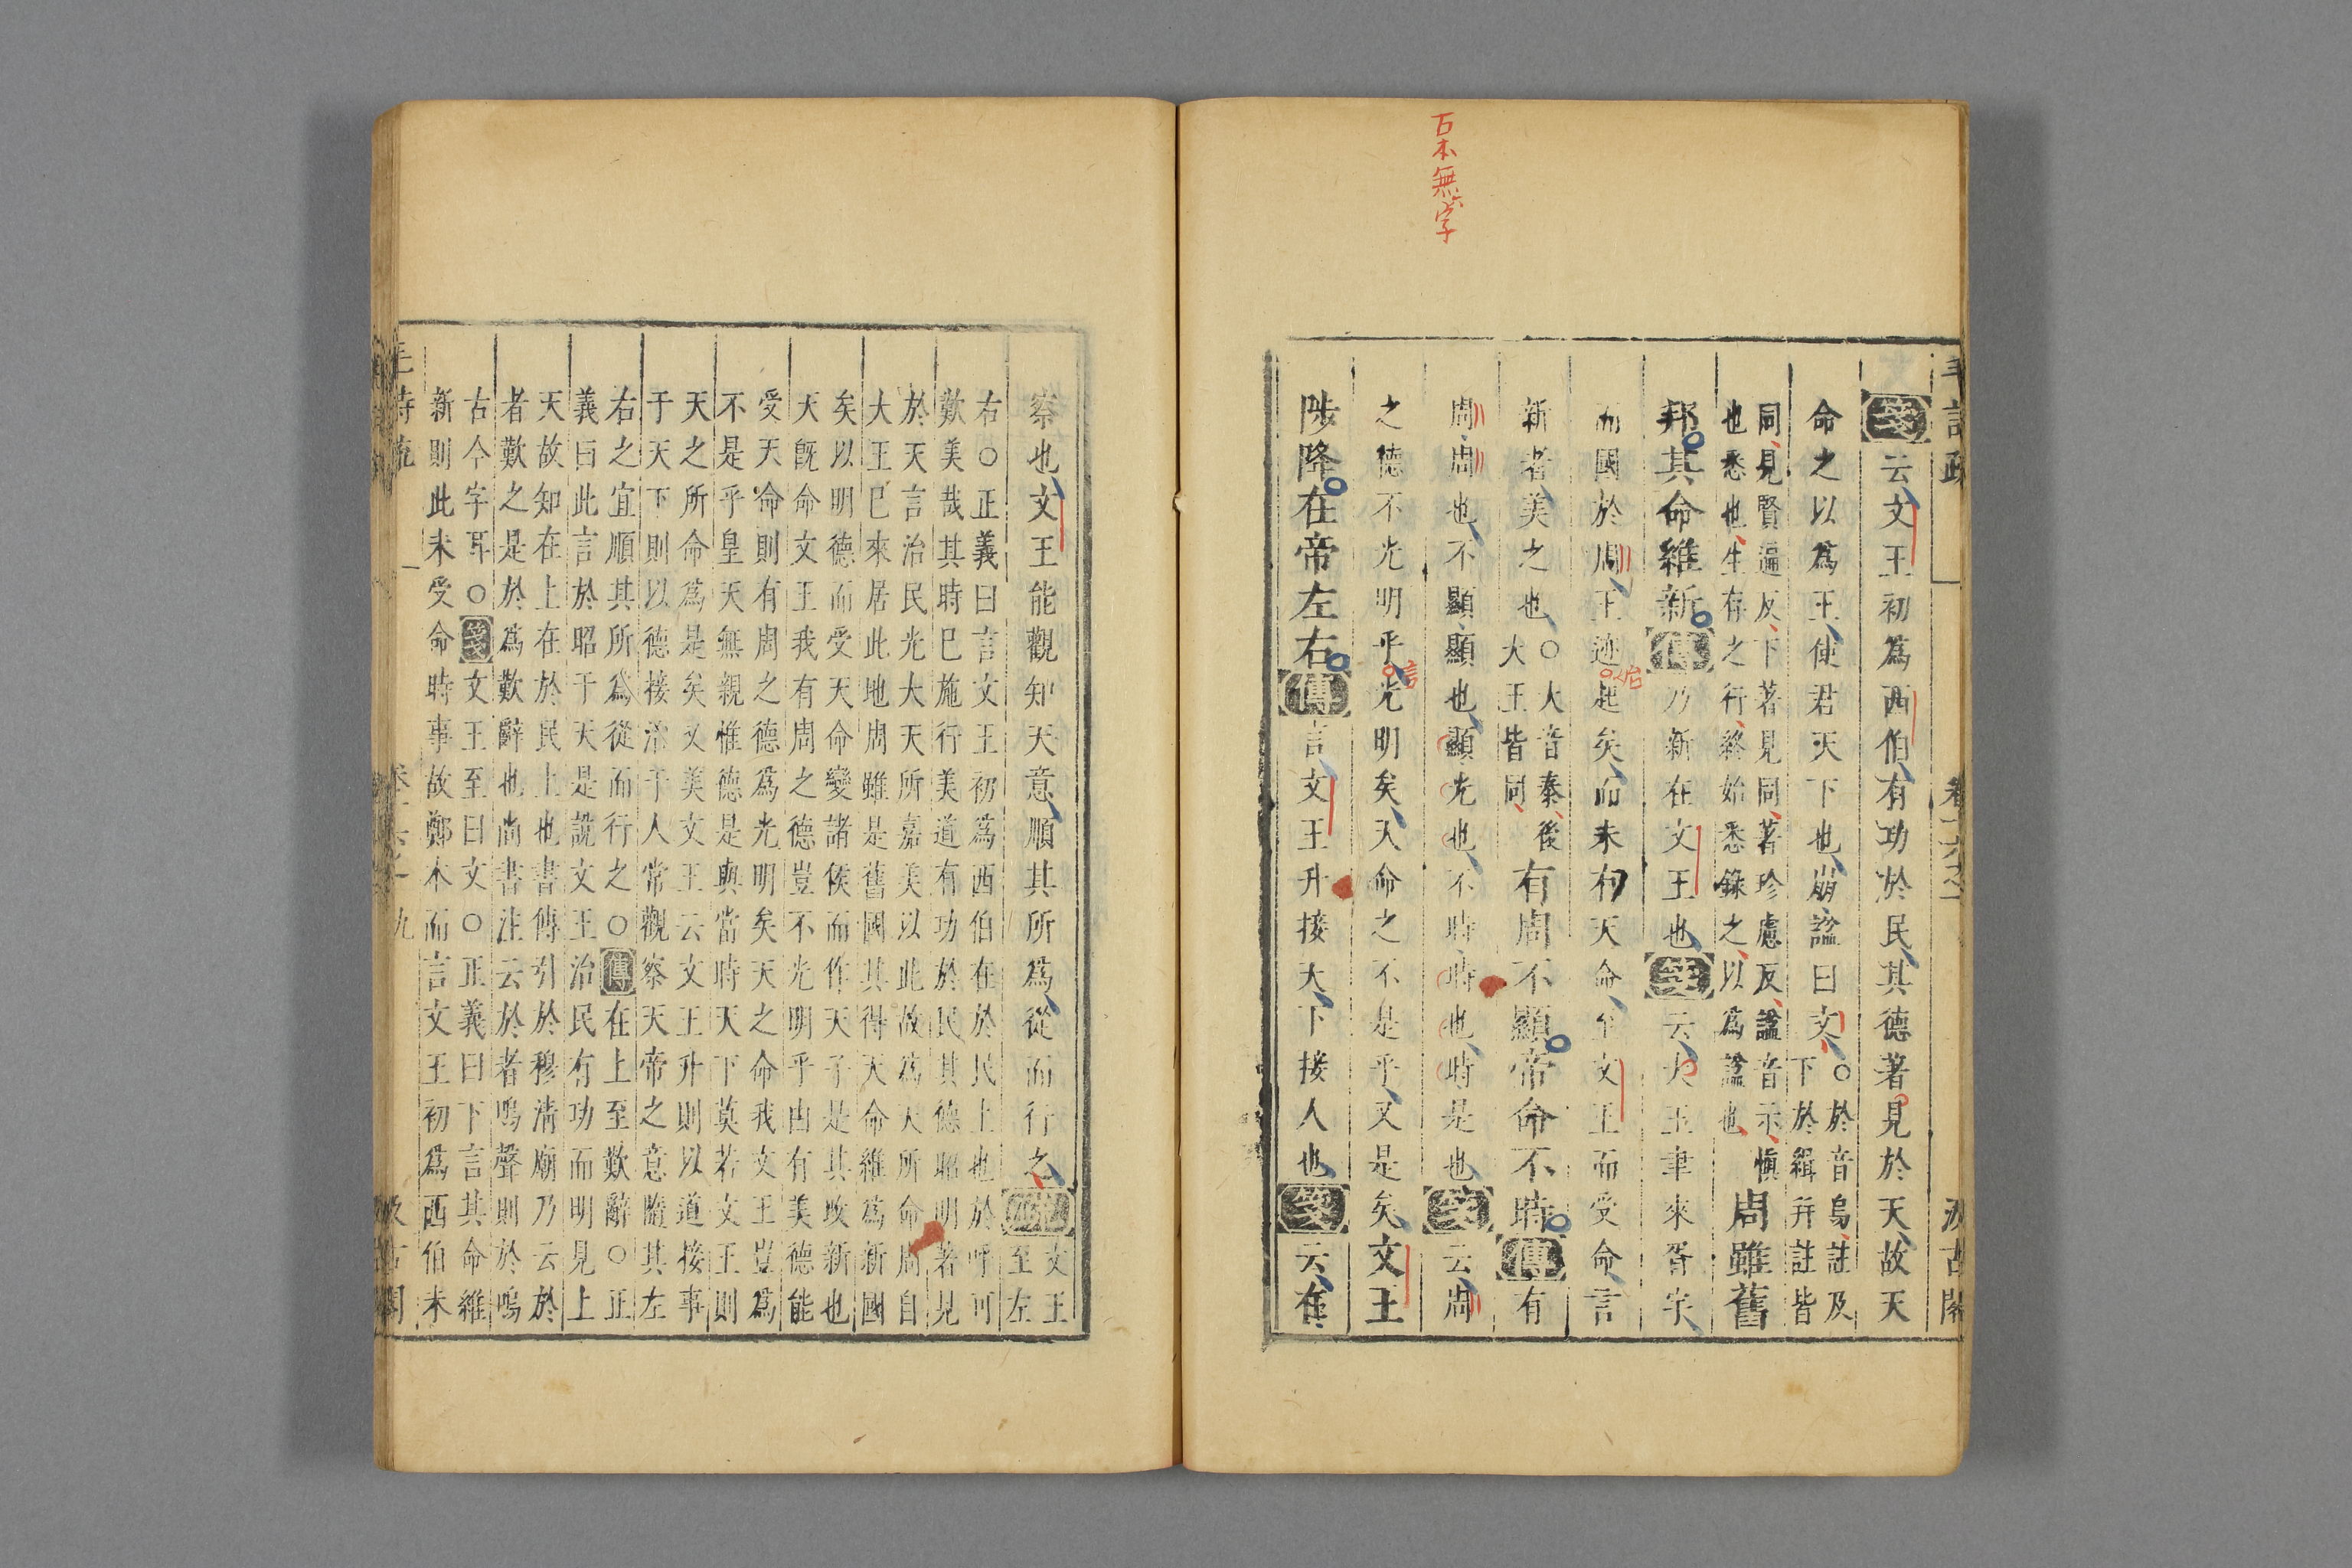 石本無六字
毛詩疏 卷十六之一 汲古閣
箋云文王初爲西伯有功於民其德著見於天故天
命之以爲王使君天下也崩謚曰文○於音烏註及
下於緝并註皆
同見賢遍反下著見同著珍慮反謚音示慎
也悉也生存之行終始悉錄之以爲謚也
周雖舊
邦其命維新傳乃新在文王也箋云大王聿來胥宇
而國於周王迹起矣而未有天命至文王而受命言
新者美之也○大音泰後
大王皆同
有周不顯帝命不時傳有
周周也不顯顯也顯光也不時時也時是也箋云周
之德不光明乎光明矣天命之不是乎又是矣文王
陟降在帝左右傳言文王升接天下接人也箋云在
言
启
察也文王能觀知天意順其所爲從而行之疏文王
至左
右○正義曰言文王初爲西伯在於民上也於呼可
歎美哉其時已施行美道有功於民其德昭明著見
於天言治民光大天所嘉美以此故爲天所命周自
大王已來居此地周雖是舊國其得天命維爲新國
矣以明德而受天命變諸侯而作天子是其改新也
天既命文王我有周之德豈不光明乎由有美德能
受天命則有周之德爲光明矣天之命我文王豈爲
不是乎皇天無親惟德是與當時天下莫若文王則
天之所命爲是矣又美文王云文王升則以道接事
于天下則以德接治于人常觀察天帝之意隨其左
右之宜順其所爲從而行之○傳在上至歎辭○正
義曰此言於昭于天是說文王治民有功而明見上
天故知在上在於民上也書傳引於穆清廟乃云於
者歎之是於爲歎辭也尚書注云於者嗚聲則於嗚
古今字耳○箋文王至曰文○正義曰下言其命維
新則此未受命時事故鄭本而言文王初爲西伯未
毛詩疏 卷十六之一 九 汲古閣